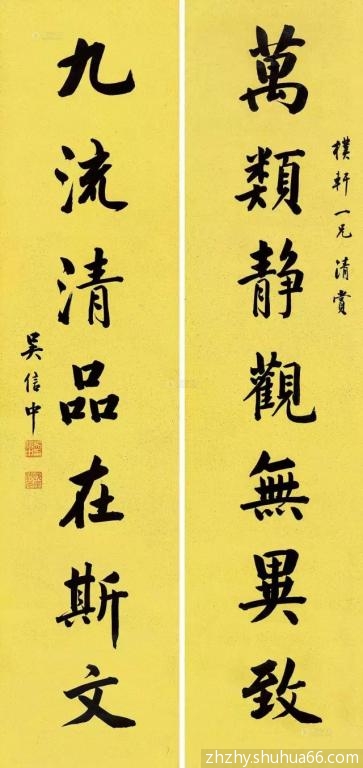 樸軒一兄清賞
萬類静觀無異致
九流清品在斯文
吴信中
zhzhy.shuhua66.com